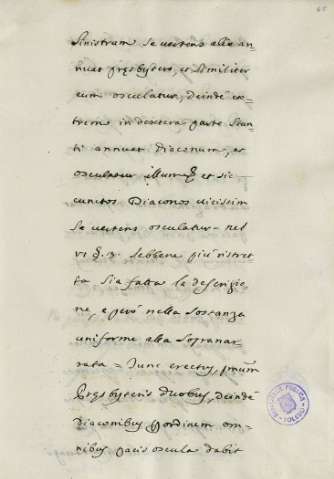 65
sinistram se vertens alia an=
nuat pręsbytero, et similiter
eum osculatur, deindè ex=
tremo in dextera parte stan=
ti annuat diaconum, et
osculatur illumq; et sic
cunctos Diaconos vicissim
se vertens osculatur = nel
VI §. 3. sebbene più ristret
ta sia fatta la descrizio
ne, e però nella sostanza
uniforme alla sopranar=
rata = Tunc erectus, primùm
Pręsbyteris duobus, deindè
diaconibus p ordinem om=
nibus pacis oscula dabit
BIBLIOTECA PUBLICA
TOLEDO